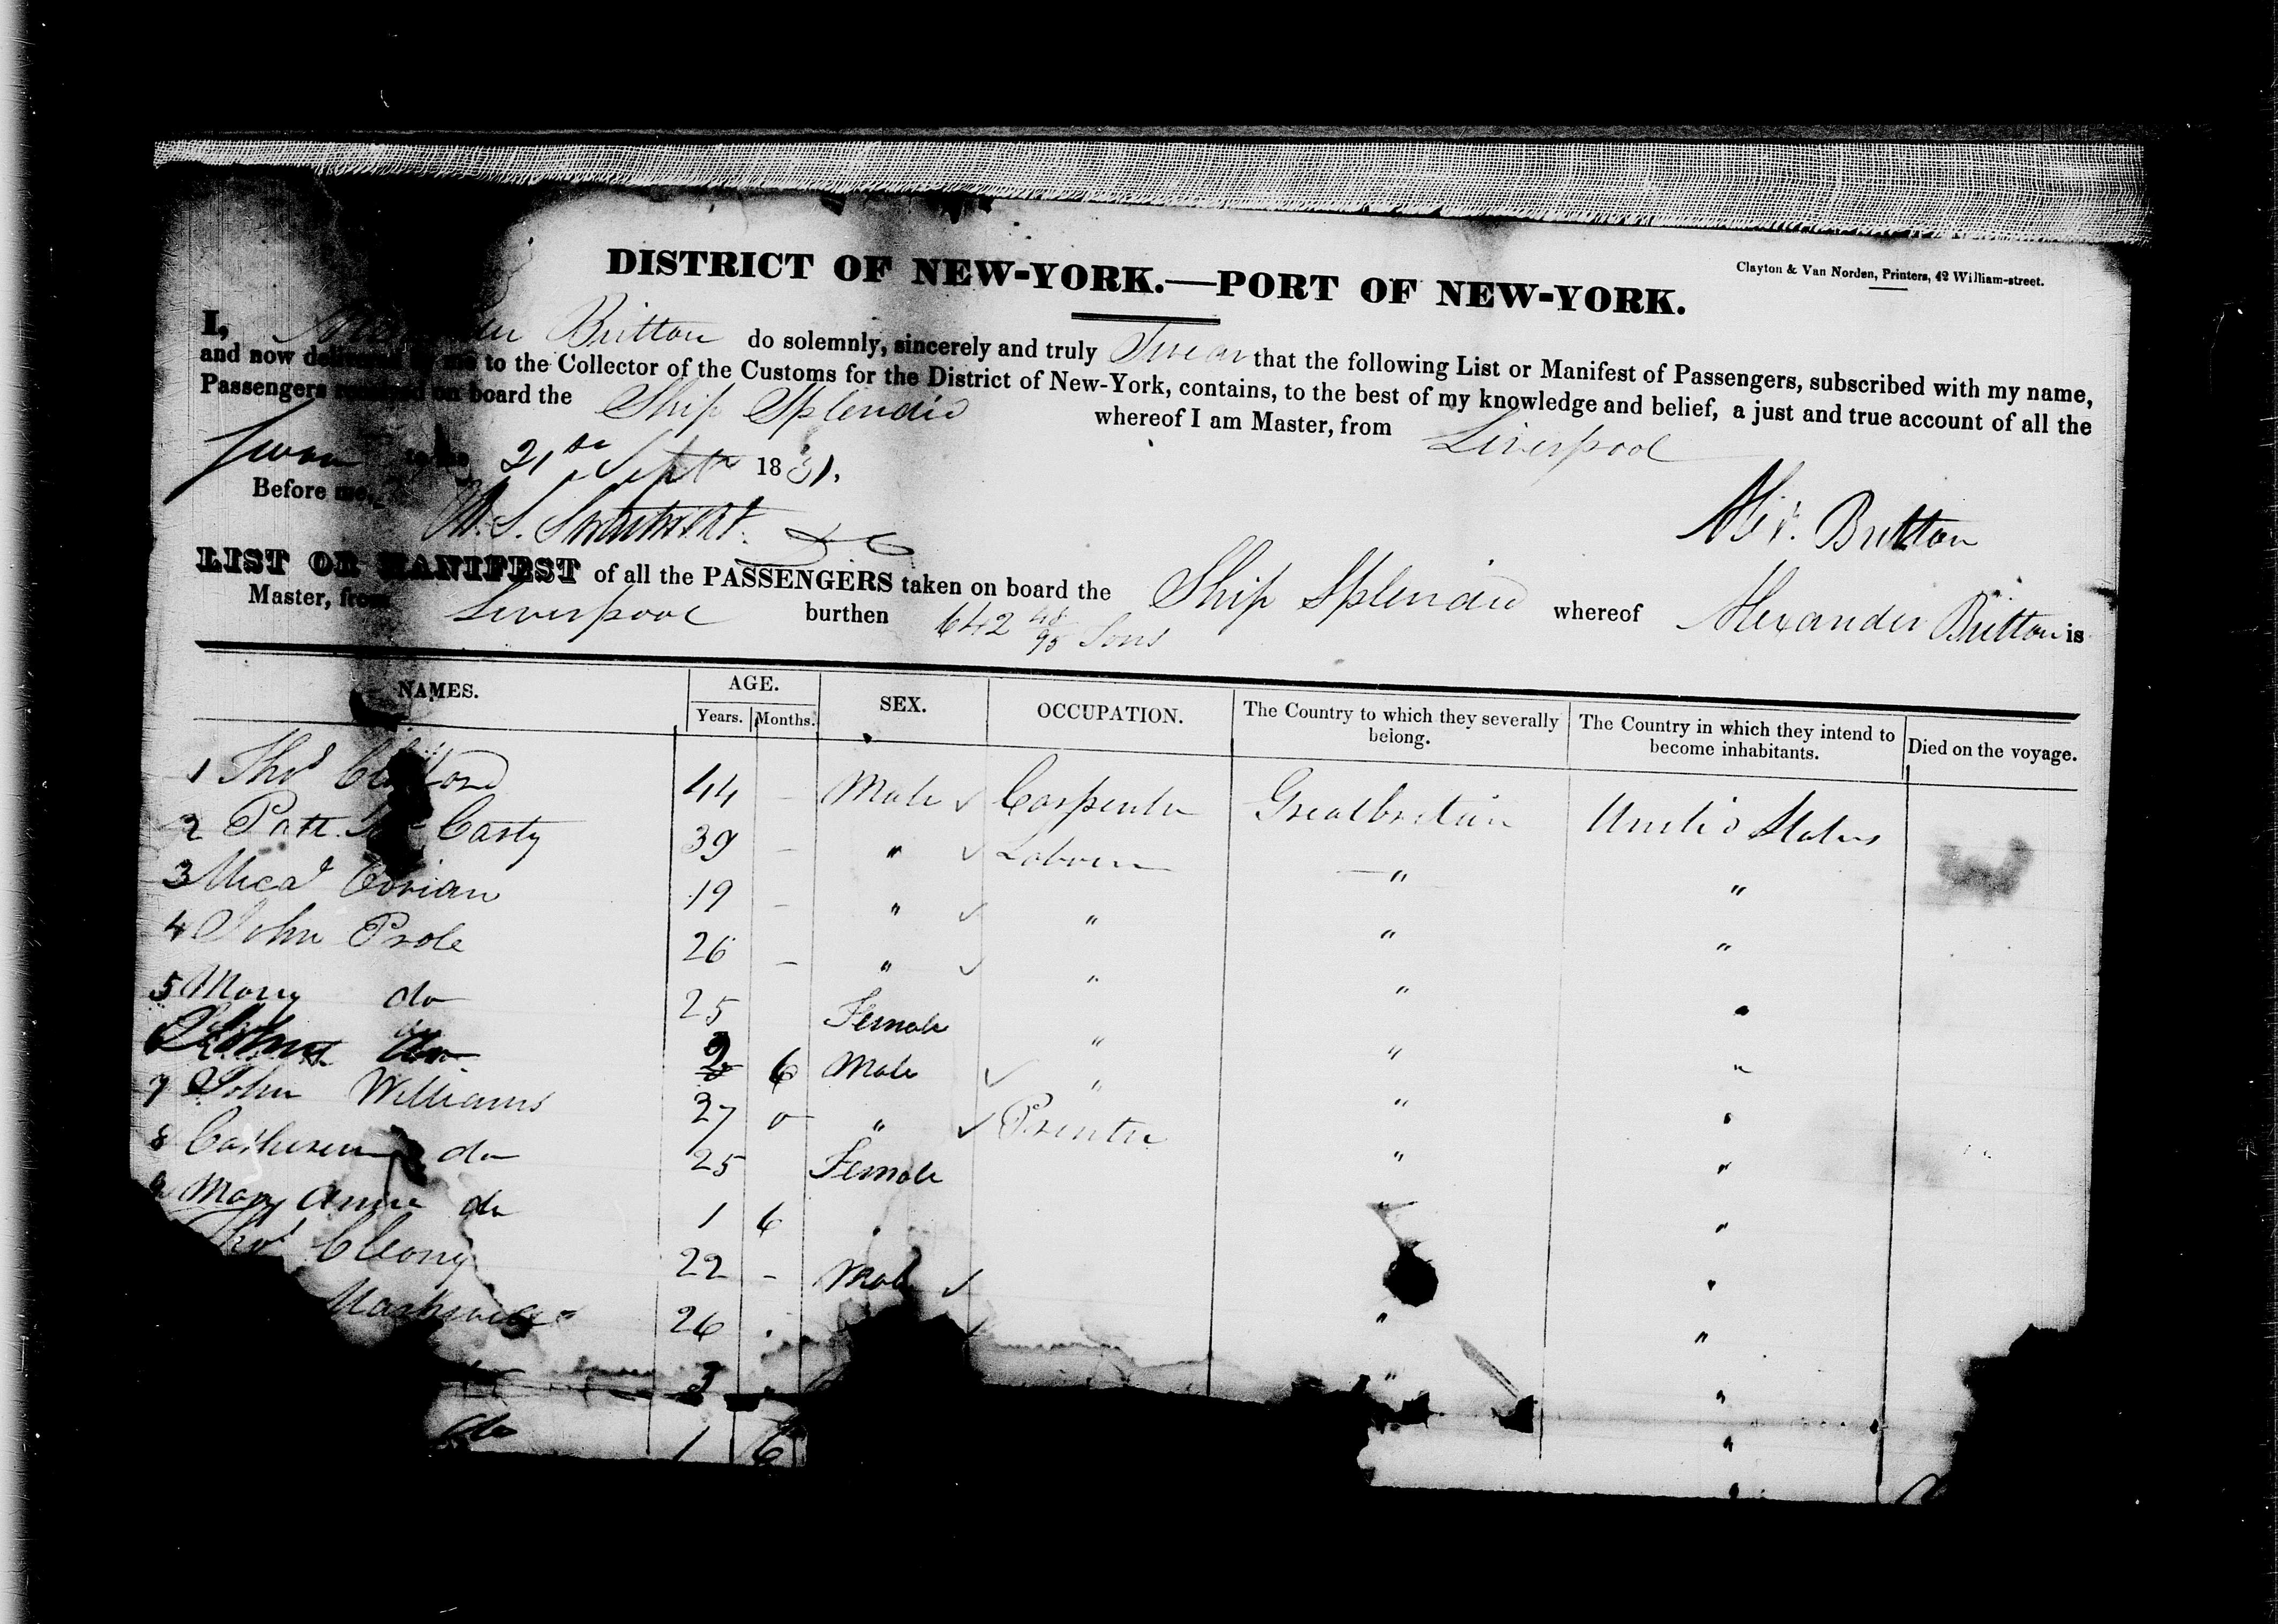 DISTRICT OF NEW-YORK.—PORT OF NEW-YORK.
Clayton & Van Norden, Printers, 42 William-street.
I, Alexander Britton do solemnly, sincerely and truly Swear that the following List or Manifest of Passengers, subscribed with my name,
and now delivered by me to the Collector of the Customs for the District of New-York, contains, to the best of my knowledge and belief, a just and true account of all the
Passengers received on board the Ship Splendid whereof I am Master, from Liverpool
Sworn to this 21st Sept 1831.
Before me,
Alexr. Britton
LIST OR MANIFEST of all the PASSENGERS taken on board the Ship Splendid whereof Alexander Britton is
Master, from Liverpool burthen 642 48/95 Tons
NAMES. AGE. SEX. OCCUPATION. The Country to which they severally belong. The Country in which they intend to become inhabitants. Died on the voyage.
Years. Months.
1 Thos 44 - Male Carpenter Great britain United States
2 Patt. Mc Carty 39 - " Labourer " "
3 Mical 19 - " " " "
4 John Prole 26 - " " " "
5 Mary do 25 Female " " "
6 do 2 6 Male " " "
7 John Williams 27 0 " Printer " "
8 Catheren do 25 Female " "
9 Mary Anne do 1 6 " " "
Thos Cleary 22 - Male "
26 " "
do 3 " "
do 1 6 "